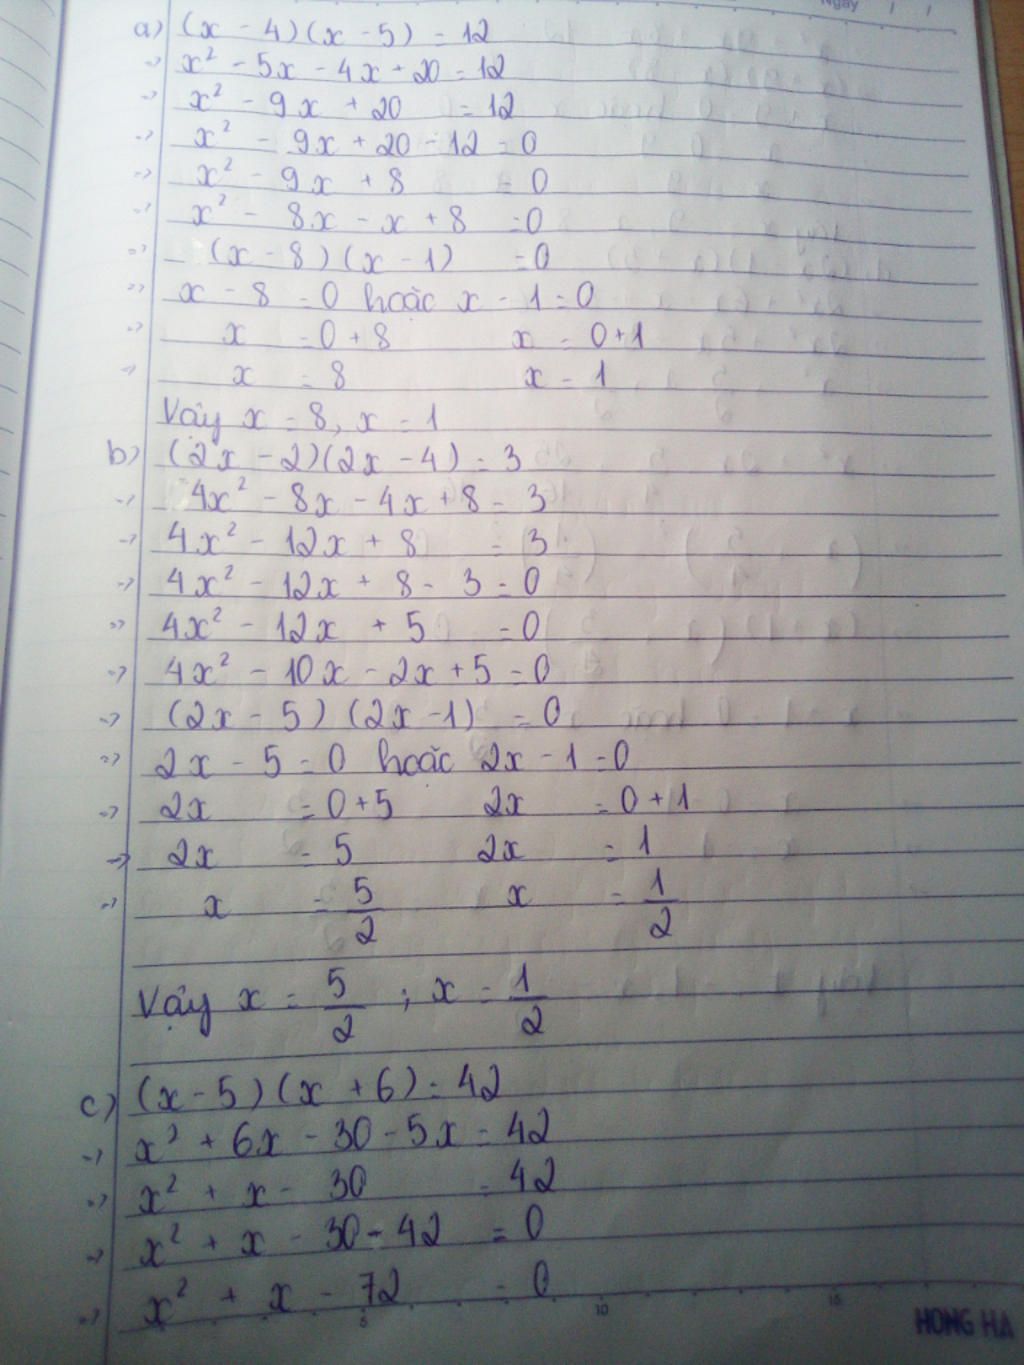 Ngày / /
a) (x - 4)(x - 5) = 12
=> x² - 5x - 4x + 20 = 12
=> x² - 9x + 20 = 12
=> x² - 9x + 20 - 12 = 0
=> x² - 9x + 8 = 0
=> x² - 8x - x + 8 = 0
=> (x - 8)(x - 1) = 0
=> x - 8 = 0 hoặc x - 1 = 0
=> x = 0 + 8 x = 0 + 1
=> x = 8 x = 1
Vậy x = 8, x = 1
b) (2x - 2)(2x - 4) = 3
=> 4x² - 8x - 4x + 8 = 3
=> 4x² - 12x + 8 = 3
=> 4x² - 12x + 8 - 3 = 0
=> 4x² - 12x + 5 = 0
=> 4x² - 10x - 2x + 5 = 0
=> (2x - 5)(2x - 1) = 0
=> 2x - 5 = 0 hoặc 2x - 1 = 0
=> 2x = 0 + 5 2x = 0 + 1
=> 2x = 5 2x = 1
=> x = 5/2 x = 1/2
Vậy x = 5/2 ; x = 1/2
c) (x - 5)(x + 6) = 42
=> x² + 6x - 30 - 5x = 42
=> x² + x - 30 = 42
=> x² + x - 30 - 42 = 0
=> x² + x - 72 = 0
5 10 15
HONG HA